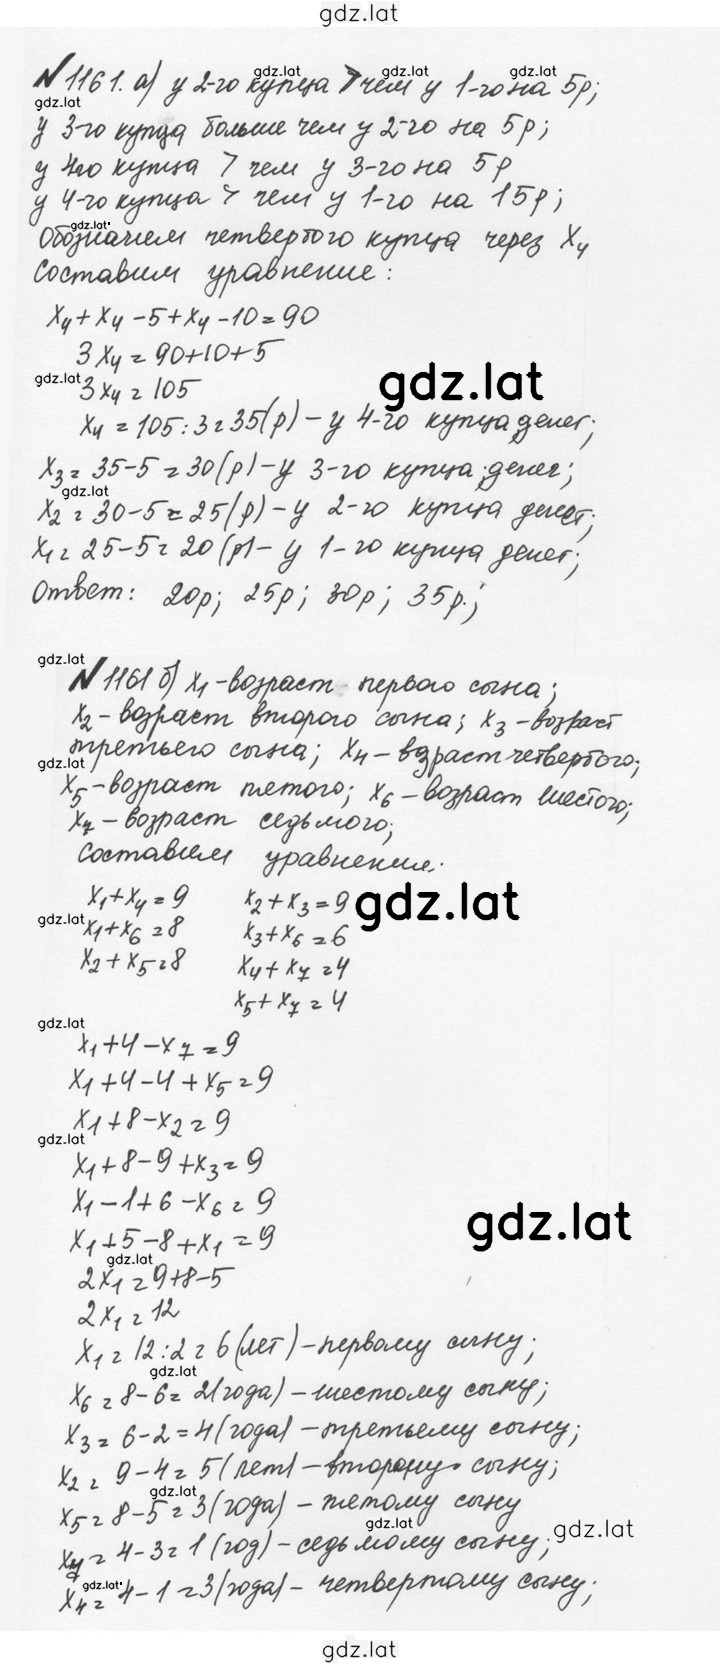 gdz.lat
№1161. а) у 2-го купца > чем у 1-го на 5р;
у 3-го купца больше чем у 2-го на 5р;
у 4го купца > чем у 3-го на 5р
у 4-го купца > чем у 1-го на 15р;
Обозначием четвертого купца через x₄
Составим уравнение:
x₄+x₄-5+x₄-10=90
3x₄=90+10+5
3x₄=105
gdz.lat
x₄=105:3=35(р)-у 4-го купца денег;
x₃=35-5=30(р)-у 3-го купца денег;
x₂=30-5=25(р)-у 2-го купца денег;
x₁=25-5=20(р)-у 1-го купца денег;
Ответ: 20р; 25р; 30р; 35р.;
№1161 б) x₁-возраст первого сына;
x₂-возраст второго сына; x₃-возраст
третьего сына; x₄-возраст четвертого;
x₅-возраст пятого; x₆-возраст шестого;
x₇-возраст седьмого;
Составием уравнения:
x₁+x₄=9 x₂+x₃=9
gdz.lat
x₁+x₆=8 x₃+x₆=6
x₂+x₅=8 x₄+x₇=4
x₅+x₇=4
x₁+4-x₇=9
x₁+4-4+x₅=9
x₁+8-x₂=9
x₁+8-9+x₃=9
x₁-1+6-x₆=9
gdz.lat
x₁+5-8+x₁=9
2x₁=9+8-5
2x₁=12
x₁=12:2=6(лет)-первому сыну;
x₆=8-6=2(года)-шестому сыну;
x₃=6-2=4(года)-третьему сыну;
x₂=9-4=5(лет)-второму сыну;
x₅=8-5=3(года)-пятому сыну
x₇=4-3=1(год)-седьмому сыну;
gdz.lat
x₄=4-1=3(года)-четвертому сыну;
gdz.lat